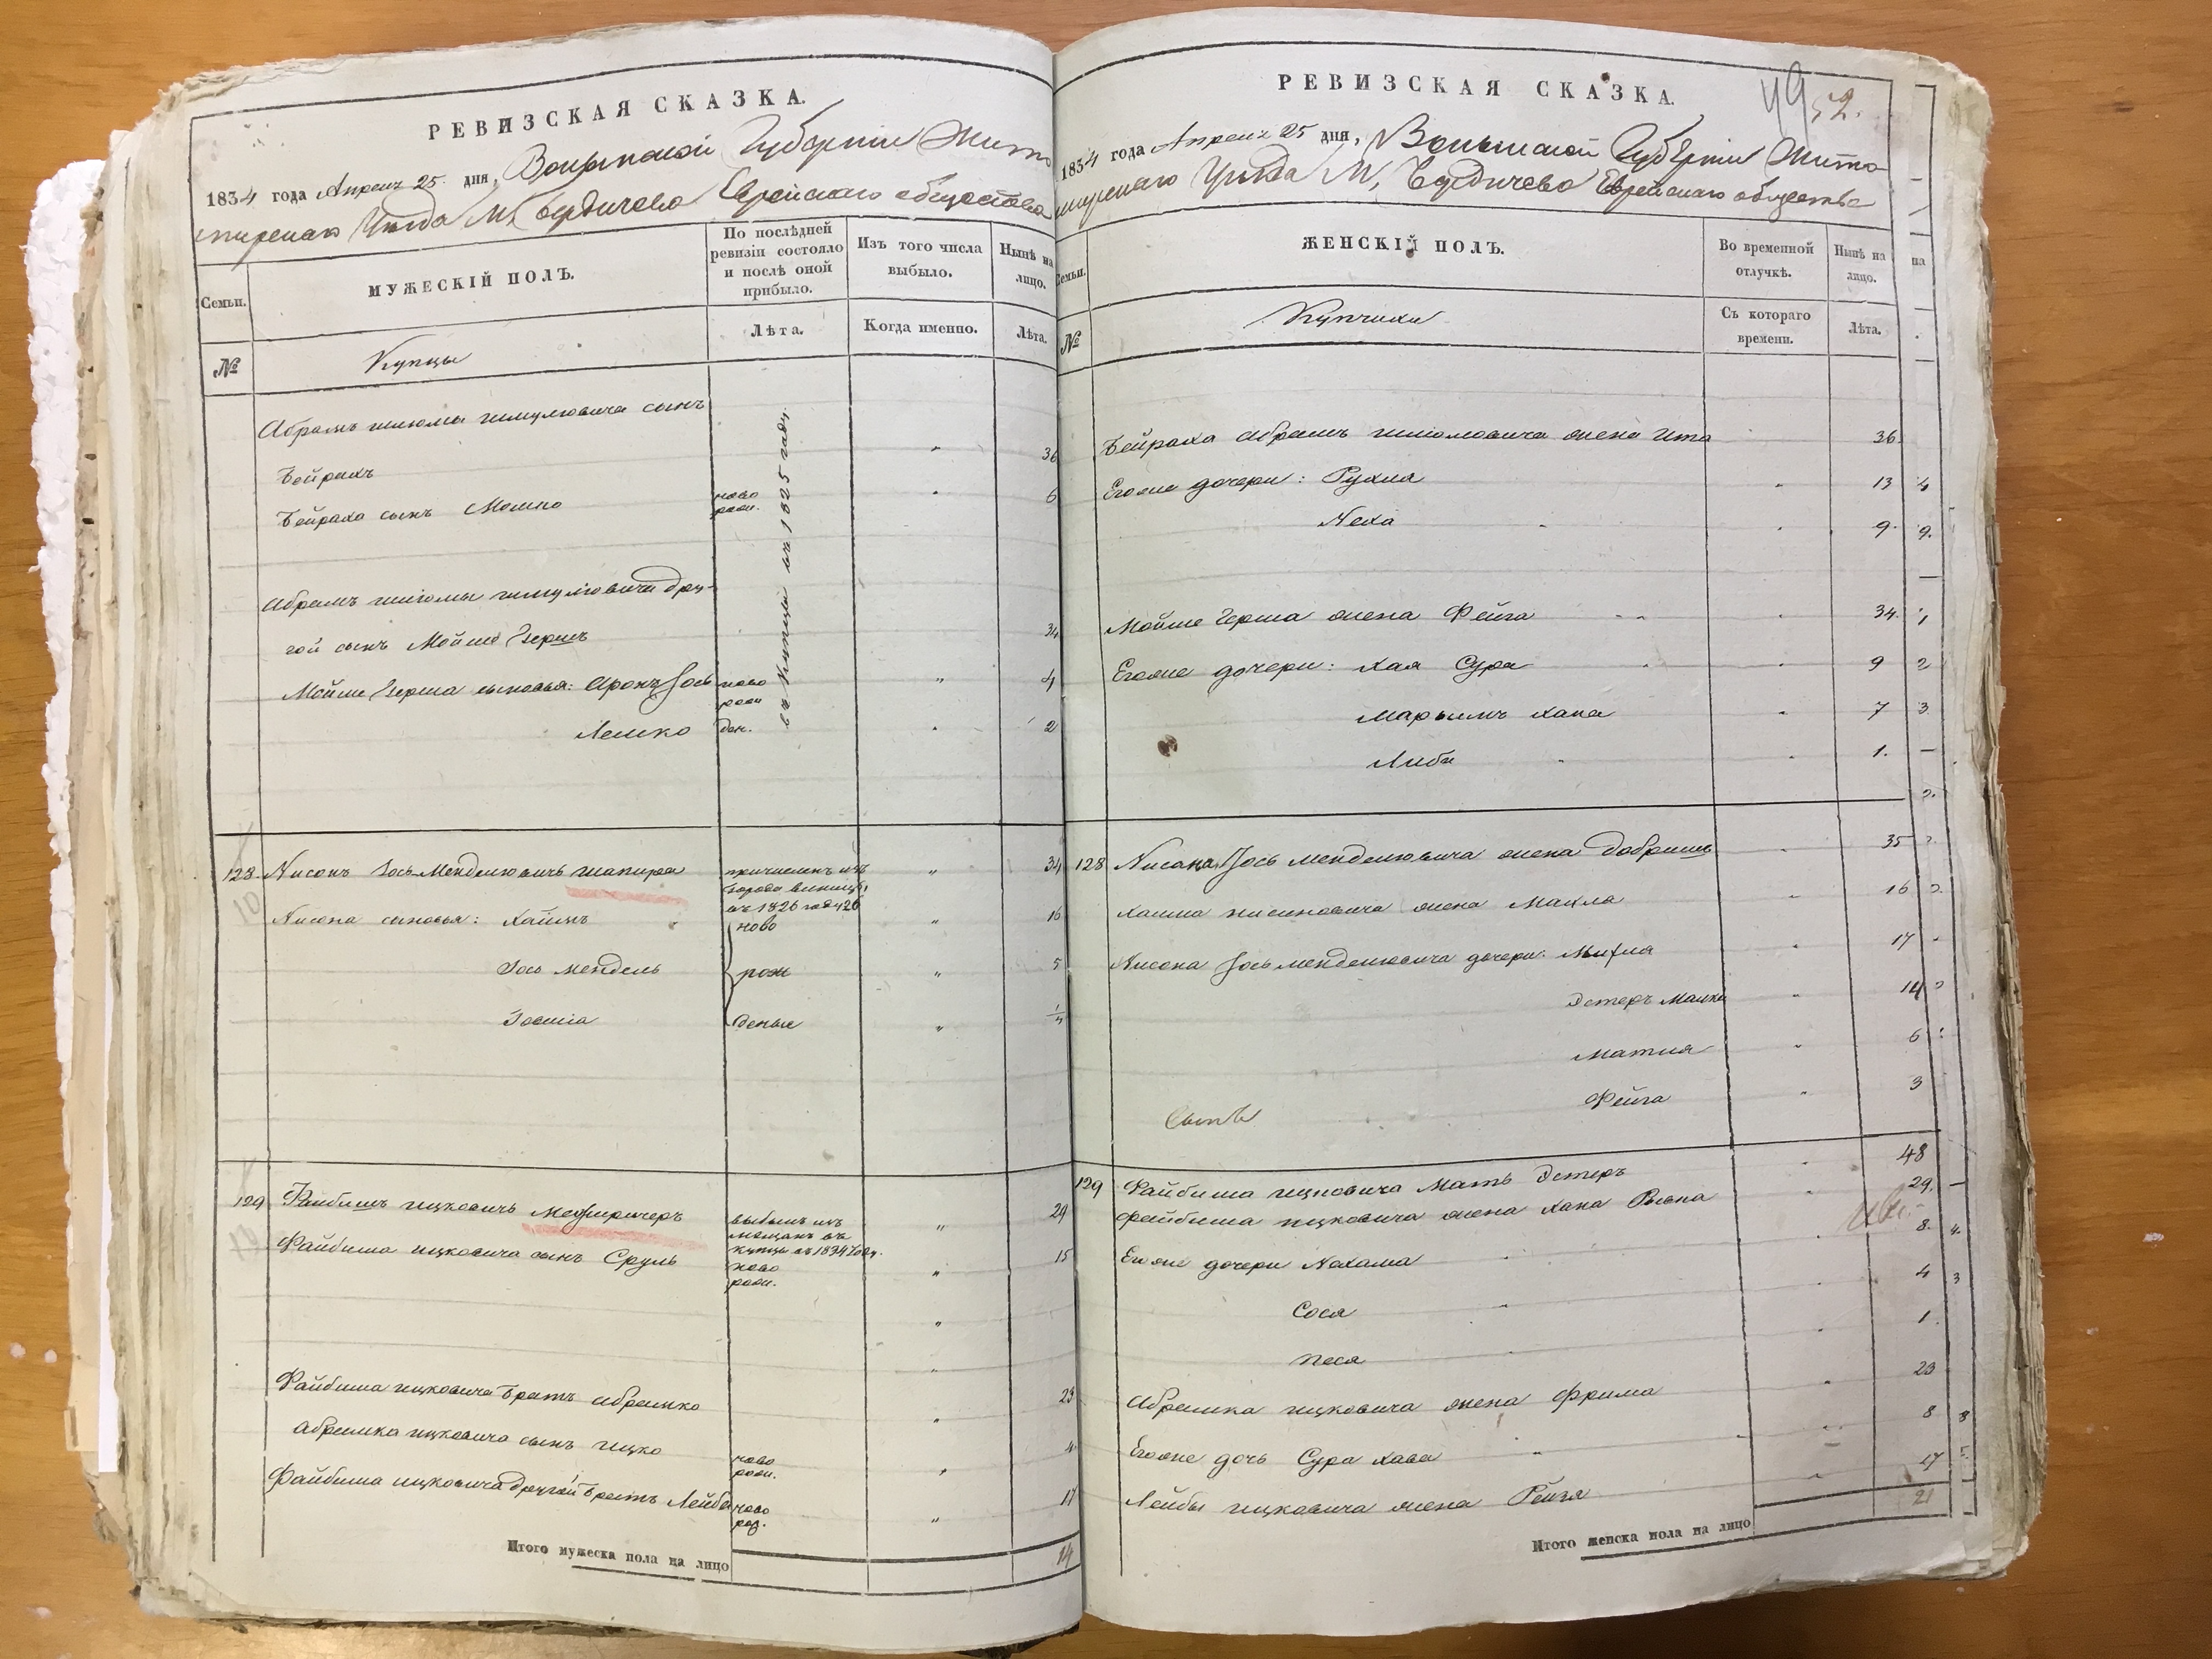 РЕВИЗСКАЯ СКАЗКА.
1834 года Апреля 25 дня, Волынской Губернии Жито
мирскаго Уезда М. Бердичева Еврейскаго общества
Семьи.
МУЖЕСКІЙ ПОЛЪ.
По послѣдней ревизіи состояло и послѣ оной прибыло.
Изъ того числа выбыло.
Нынѣ на лицо.
№
Купцы
Лѣта.
Когда именно.
Лѣта.
Абрамъ шліомы шмулювича сынъ
Бейрахъ 36
Бейраха сынъ Мошко ново рож. 6
въ купцы въ 1825 году
Абрамъ шліомы шмулювича дру-
гой сынъ Мойше Гершъ 34
Мойше Герша сыновья: Аронъ Іось ново рож 4
Лешко ден. 2
128 Нисонъ Іось Менделювичъ шапира причисленъ изъ города виницы въ 1826 году 26 34
Нисона сыновья: Хаимъ ново 16
Іось Мендель рож 5
Іосиіа деные 1/4
129 Файбишъ ицковичъ Межиричеръ выбылъ изъ мещанъ въ купцы въ 1834 году. 29
Файбиша ицковича сынъ Сруль ново рож. 15
Файбиша ицковича братъ абрамко 23
Абрамка ицковича сынъ ицко ново рож. 4
Файбиша ицковича другой братъ Лейба ново рож. 17
Итого мужеска пола на лицо 14
РЕВИЗСКАЯ СКАЗКА.
49 52.
1834 года Апреля 25 дня, Волынской Губерніи Жито
мирскаго Уезда М. Бердичева Еврейскаго общества
Семьи.
ЖЕНСКІЙ ПОЛЪ.
Во временной отлучкѣ.
Нынѣ на лицо.
№
Купчихи
Съ котораго времени.
Лѣта.
Бейраха абрамъ шліомовича жена Ита 36
Егоже дочери: Рухля 13
Неха 9
Мойше Герша жена Фейга 34
Егоже дочери: хая Сура 9
Марьямъ хана 7
Либа 1.
128 Нисана Іось Менделювича жена Добришъ 35
Хаима нисиновича жена Махла 16
Нисона Іось менделювича дочери: 17
Эстеръ Малка 14
Матля 6
Фейга 3
129 Файбиша ицковича Мать Эстеръ 48
Файбиша ицковича жена хана Рывка 29
Егоже дочери Нахама 8
Сося 4
Песя 1
Абрамка ицковича жена Фрима 23
Егоже дочь Сура хава 8
Лейбы ицковича жена Рейзя 17
Итого женска пола на лицо 21